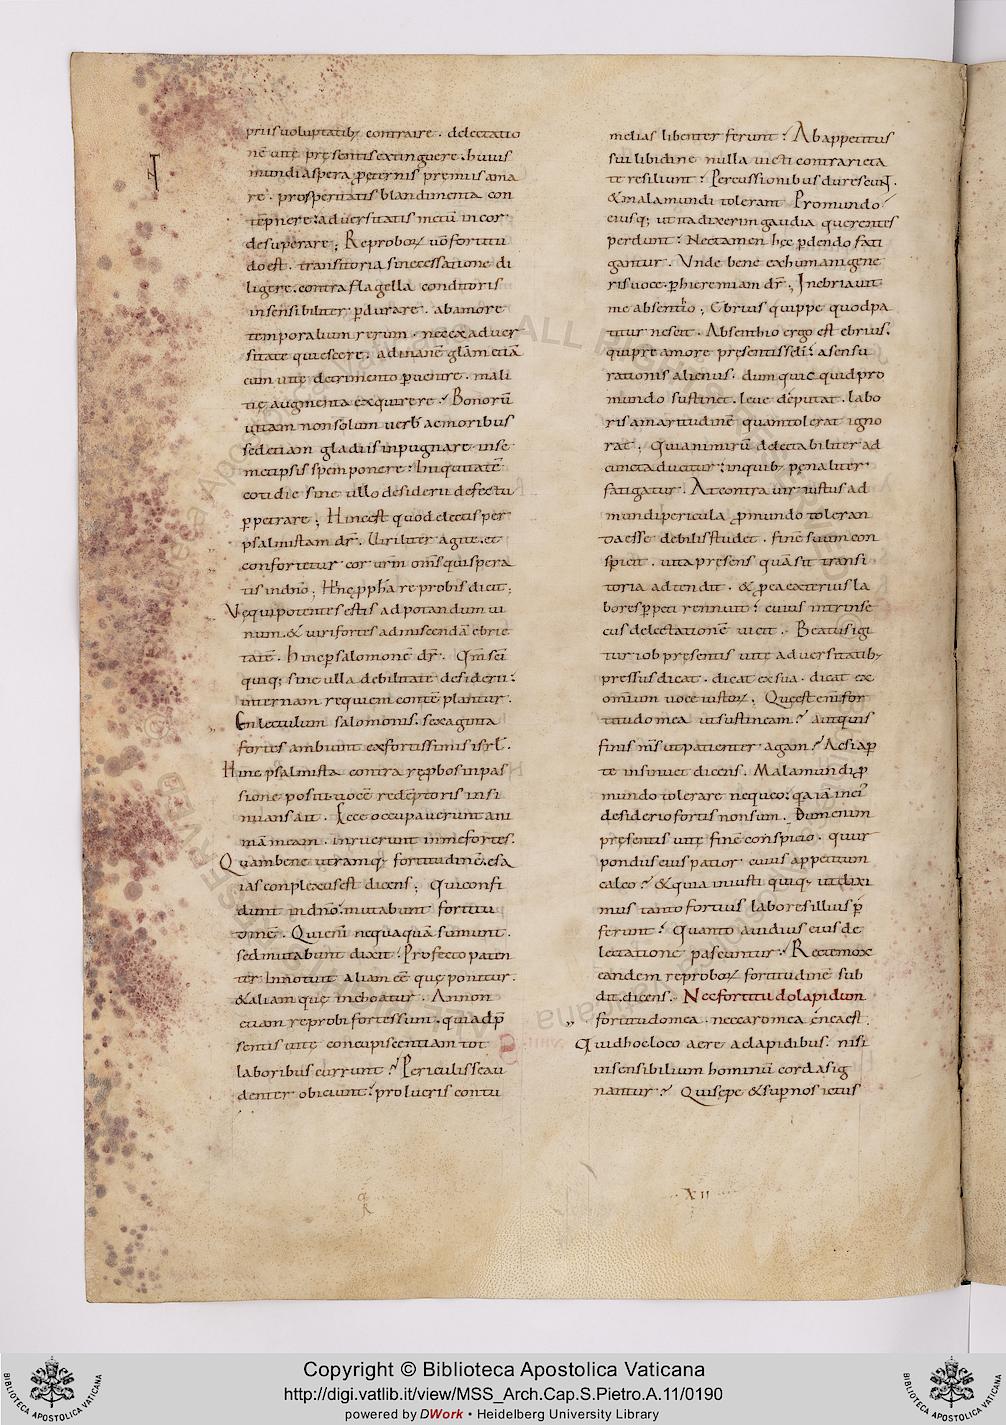 priis uoluptatib; contraire. delectatio
nē uitę pręsentis extinguere. huius
mundi aspera p̱ ęternis premiis ama
re. prosperitatis blandimenta con
tēpnere: aduersitatis metū in cor
de superare; Reproboꝝ uō fortitu
do est. transitoria sine cessatione di
ligere. contra flagella conditoris
insensibiliter ꝑdurare. ab amore
temporalium rerum. nec ex aduer
sitate quiescere. ad inanē glām etiā
cum uitę detrimento ꝑuenire. mali
tię augmenta exquirere. Bonorū
uitam non solum uerb̄ ac moribus
sed etiam gladiis inpugnare. in se
metipsis spem ponere. Iniquitatē
cotidie sine ullo desiderii defectu
ꝑpetrare; Hinc est quod electis per
psalmistam dr̄. Uiriliter agite. et
confortetur cor urm̄ om̄s qui spera
tis in dn̄o; Hinc ꝓph̄a reprobis dicit;
Vę qui potentes estis ad potandum ui
num. & uiri fortes ad miscendā ebrie
tatē. Hinc ꝑ salomonē dr̄. Qm̄ sc̄i
quiq; sine ulla debilitate desiderii:
internam requiem contēplantur.
En lectulum salomonis. sexaginta
fortes ambiunt ex fortissimis isrl̄.
Hinc psalmista contra rep̱bos in pas
sione positi. uocē redēptoris insi
nuans ait. Ecce occupauerunt ani
mā meam. inruerunt in me fortes.
Quam bene utramq; fortitudinē esa
ias conplexus est dicens; Qui confi
dunt in dn̄o: mutabunt fortitu
dinē. Qui eni nequaquā sumunt.
sed mutabunt dixit: Profecto paten
ter innotuit aliam eē quę ponitur.
& aliam quę inchoatur. An non
etiam reprobi fortes sunt. qui ad p̄
sentis uitę concupiscentiam tot
laboribus currunt? Periculis se au
denter obiciunt: pro lucris contu
melias libenter ferunt: Ab appetitus
sui libidine nulla uicti contrarieta
te resiliunt: Percussionibus durescunt.
& mala mundi tolerant Pro mundo
eiusq; ut ita dixerim gaudia querentes
perdunt: Nec tamen hęc ꝑdendo fati
gantur. Vnde bene ex humani gene
ris uoce. ꝑ hieremiam dr̄; Inebriauit
me absentio; Ebrius quippe quod pa
titur nescit. Absenthio ergo est ebrius.
qui pre amore pręsentis sc̄li: a sensu
rationis alienus. dum quicquid pro
mundo sustinet. leue deputat. labo
ris amaritudinē quam tolerat igno
rat; Quia nimirū delectabiliter ad
cuncta ducitur: in quib; penaliter
fatigatur. At contra uir iustus ad
mundi pericula ꝓ mundo toleran
da esse debilis studet. finē suum con
spicit. uita pręsens quā sit transi
toria adtendit. & ꝓ ea exterius la
bores ꝑpeti rennuit: cuius intrinse
cus delectationē uicit. Beatus igi
tur iob pręsentis uitę aduersitatib;
pressus dicat. dicat ex sua. dicat ex
omnium uoce iustoꝝ. Quę est enī for
titudo mea ut sustineam? Aut quis
finis m̄s ut patienter agam? Ac si aꝑ
te insinuet dicens. Mala mundi ꝓ
mundo tolerare nequeo: q̄a iā in ei
desiderio fortis non sum. Dum enim
pręsentis uitę finē conspicio. quur
pondus eius patior. cuius appetitum
calco? & quia iniusti quiq; ut dixi
mus tanto fortius labores illius ꝑ
ferunt: Quanto auidius eius de
lectatione pascuntur: Recte mox
eandem reproboꝝ fortitudinē sub
dit. dicens. Nec fortitudo lapidum
fortitudo mea. nec caro mea ęnea est.
Quid hoc loco aere ac lapidibus. nisi
insensibilium hominū corda sig
nantur? Qui sępe & supnos ictus
XII
Copyright © Biblioteca Apostolica Vaticana
http://digi.vatlib.it/view/MSS_Arch.Cap.S.Pietro.A.11/0190
powered by DWork • Heidelberg University Library
BIBLIOTECA APOSTOLICA VATICANA
BIBLIOTECA APOSTOLICA VATICANA